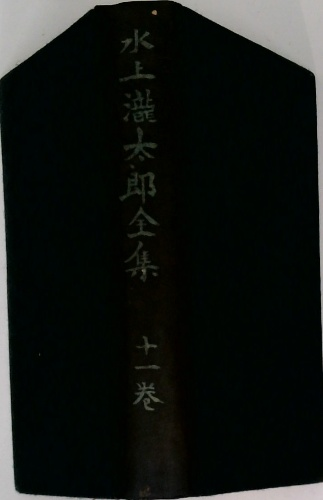 水上瀧太郎全集
十一卷